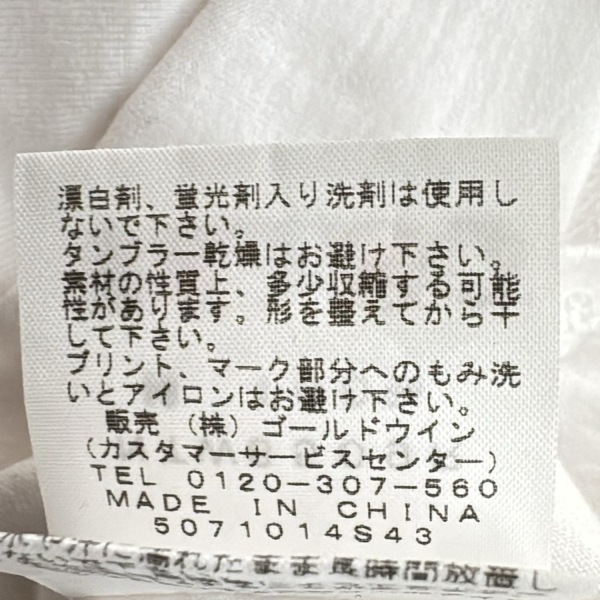 漂白剤、蛍光剤入り洗剤は使用し
ないで下さい。
タンブラー乾燥はお避け下さい。
素材の性質上、多少収縮する可能
性があります。形を整えてから干
して下さい。
プリント、マーク部分へのもみ洗
いとアイロンはお避け下さい。
販売 (株) ゴールドウイン
(カスタマーサービスセンター)
TEL 0120-307-560
MADE IN CHINA
5071014S43
に濡れたまま長時間放置し